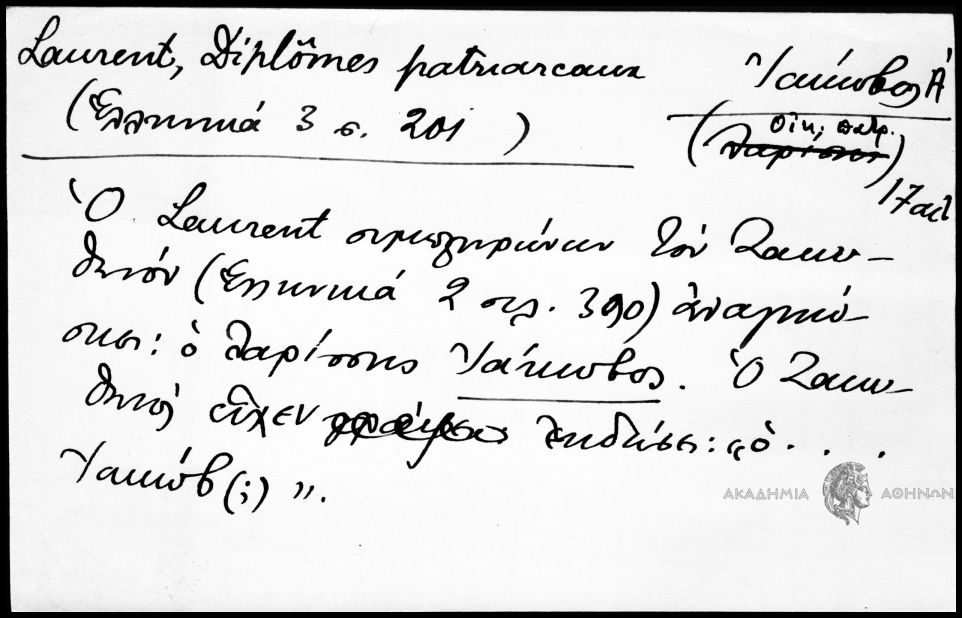 Laurent, Diplômes patriarcaux
(Ἑλληνικά 3 σ. 201 )
Ἰάκωβος Α΄
(Οἰκ; πατρ.
Λαρίσης)
17 αἰ
Ὁ Laurent συμπληρώνων τὸν Ζακυ-
θηνόν (Ἑλληνικά 2 σελ. 390) ἀναγινώ-
σκει: ὁ Λαρίσσης Ἰάκωβος. Ὁ Ζακυ-
θηνός εἶχεν ἐκδώσει: «ὁ . . .
Ἰακώβ (;) ».
ΑΚΑΔΗΜΙΑ ΑΘΗΝΩΝ